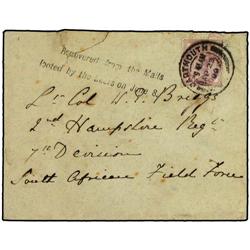 Recovered from the Mails
looted by the Boers on June 8.
DARTMOUTH
Lt Col W. T. Briggs
2nd Hampshire Regt
7th Division
South African Field Force